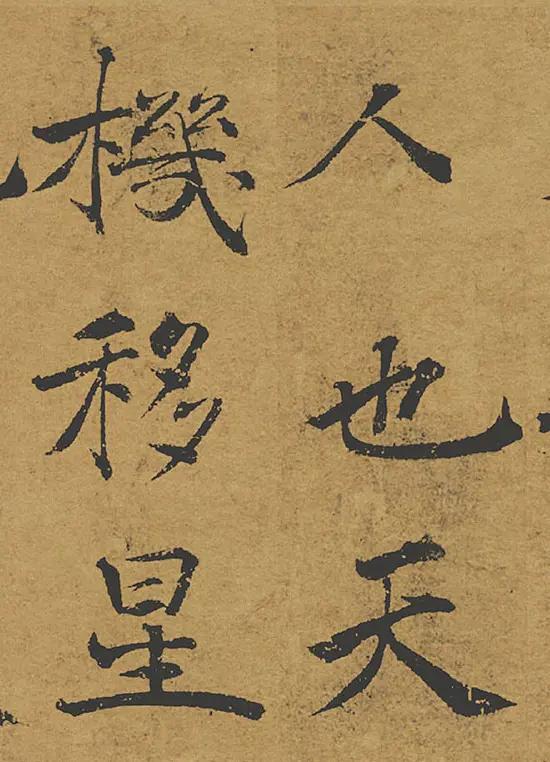 人也天
機移星